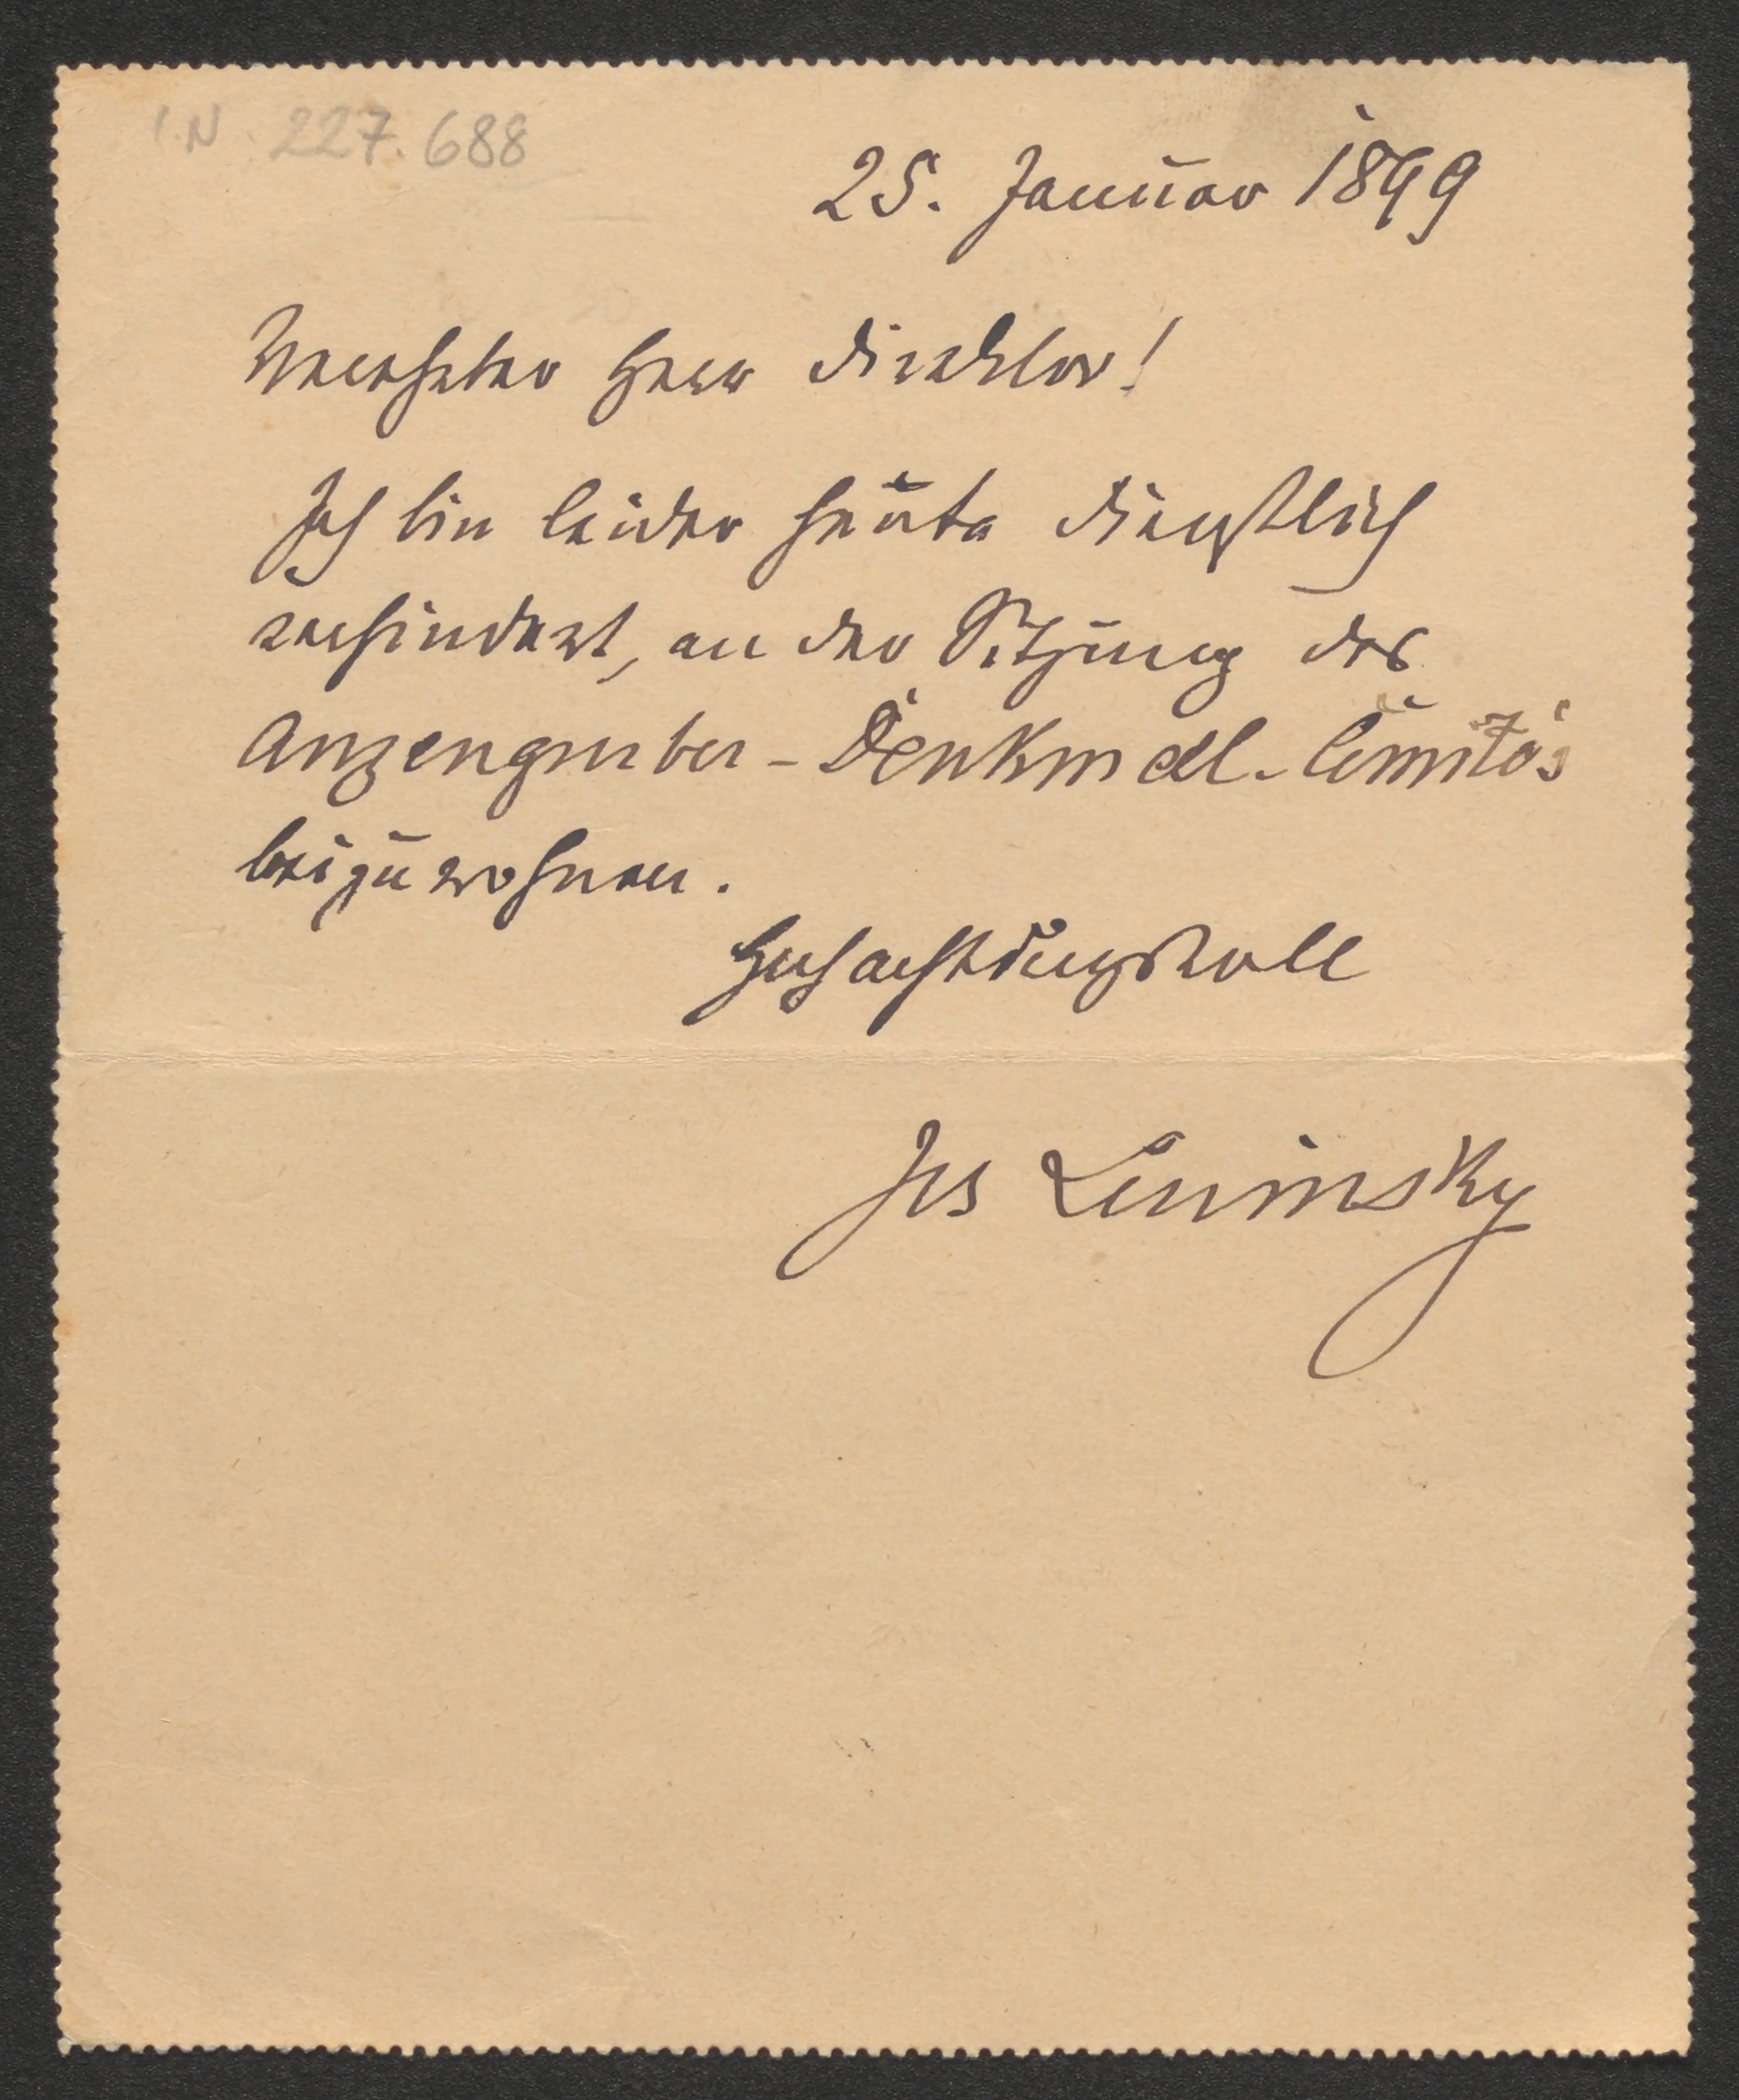 I.N. 227.688
25. Januar 1899
Verehrter Herr Direktor!
Ich bin leider heute dienstlich
verhindert, an der Sitzung des
Anzengruber-Denkmal-Comités
beizuwohnen.
Hochachtungsvoll
Jos Lewinsky